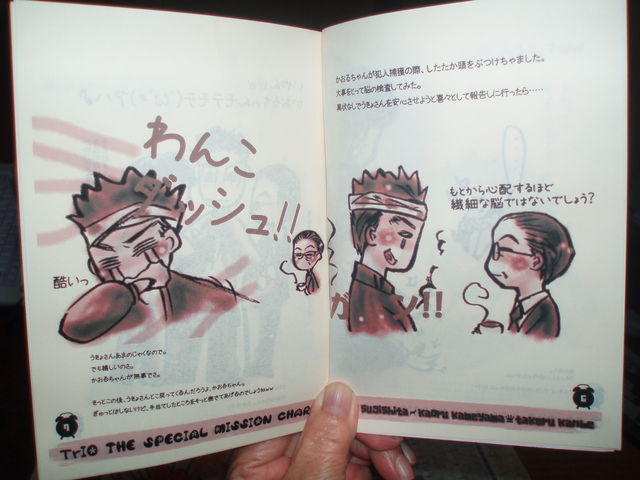 わんこ
ダッシュ!!
酷いっ
うきょさんあまのじゃくなので。
でも嬉しいのさ。
かおるちゃんが無事でさ。
きっとこの後、うきょさんとこ戻ってくるんだろうよ、かおるちゃん。
TriO THE SPECIAL MISSION CHAR
かおるちゃんが犯人捕獲の際、したたか頭をぶつけちゃました。
大事をとって脳の検査してみた。
異状なしでうきょさんを安心させようと喜々として報告しに行ったら……
もとから心配するほど
繊細な脳ではないでしょう?
ガーン!!
Sugishita Kaoru Kameyama Takeru Kanbe